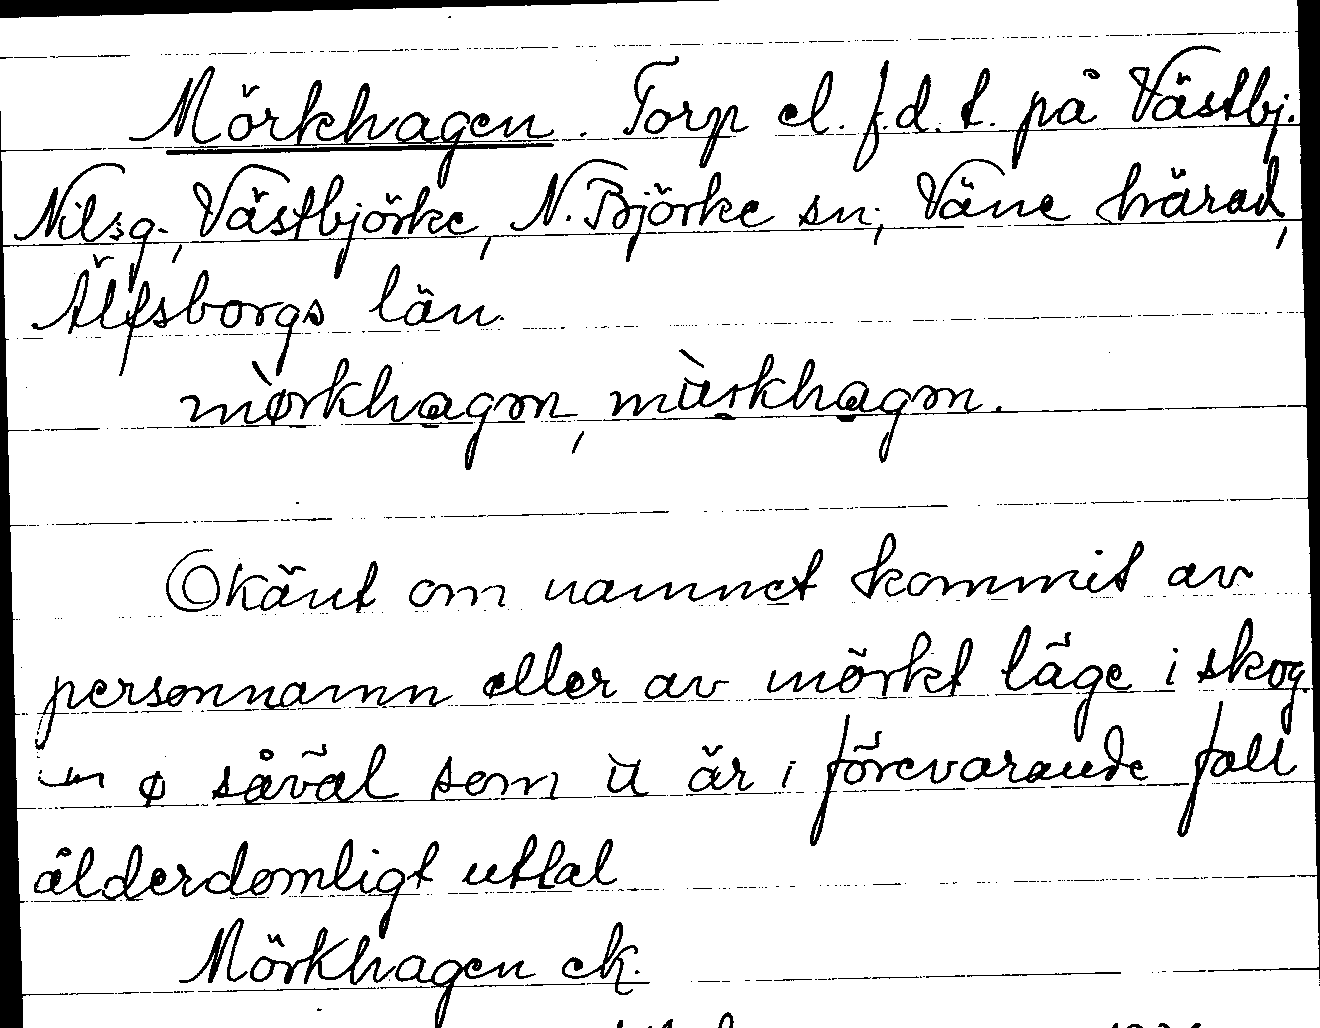 Mörkhagen. Torp el. f.d. t. på Västbj.
Nilsg., Västbjörke, N. Björke sn, Väne härad,
Älfsborgs län.
mørkhagən,
Okänt om namnet kommit av
personnamn eller av mörkt läge i skog.
ø såväl som ù är i förevarande fall
ålderdomligt uttal
Mörkhagen ek.